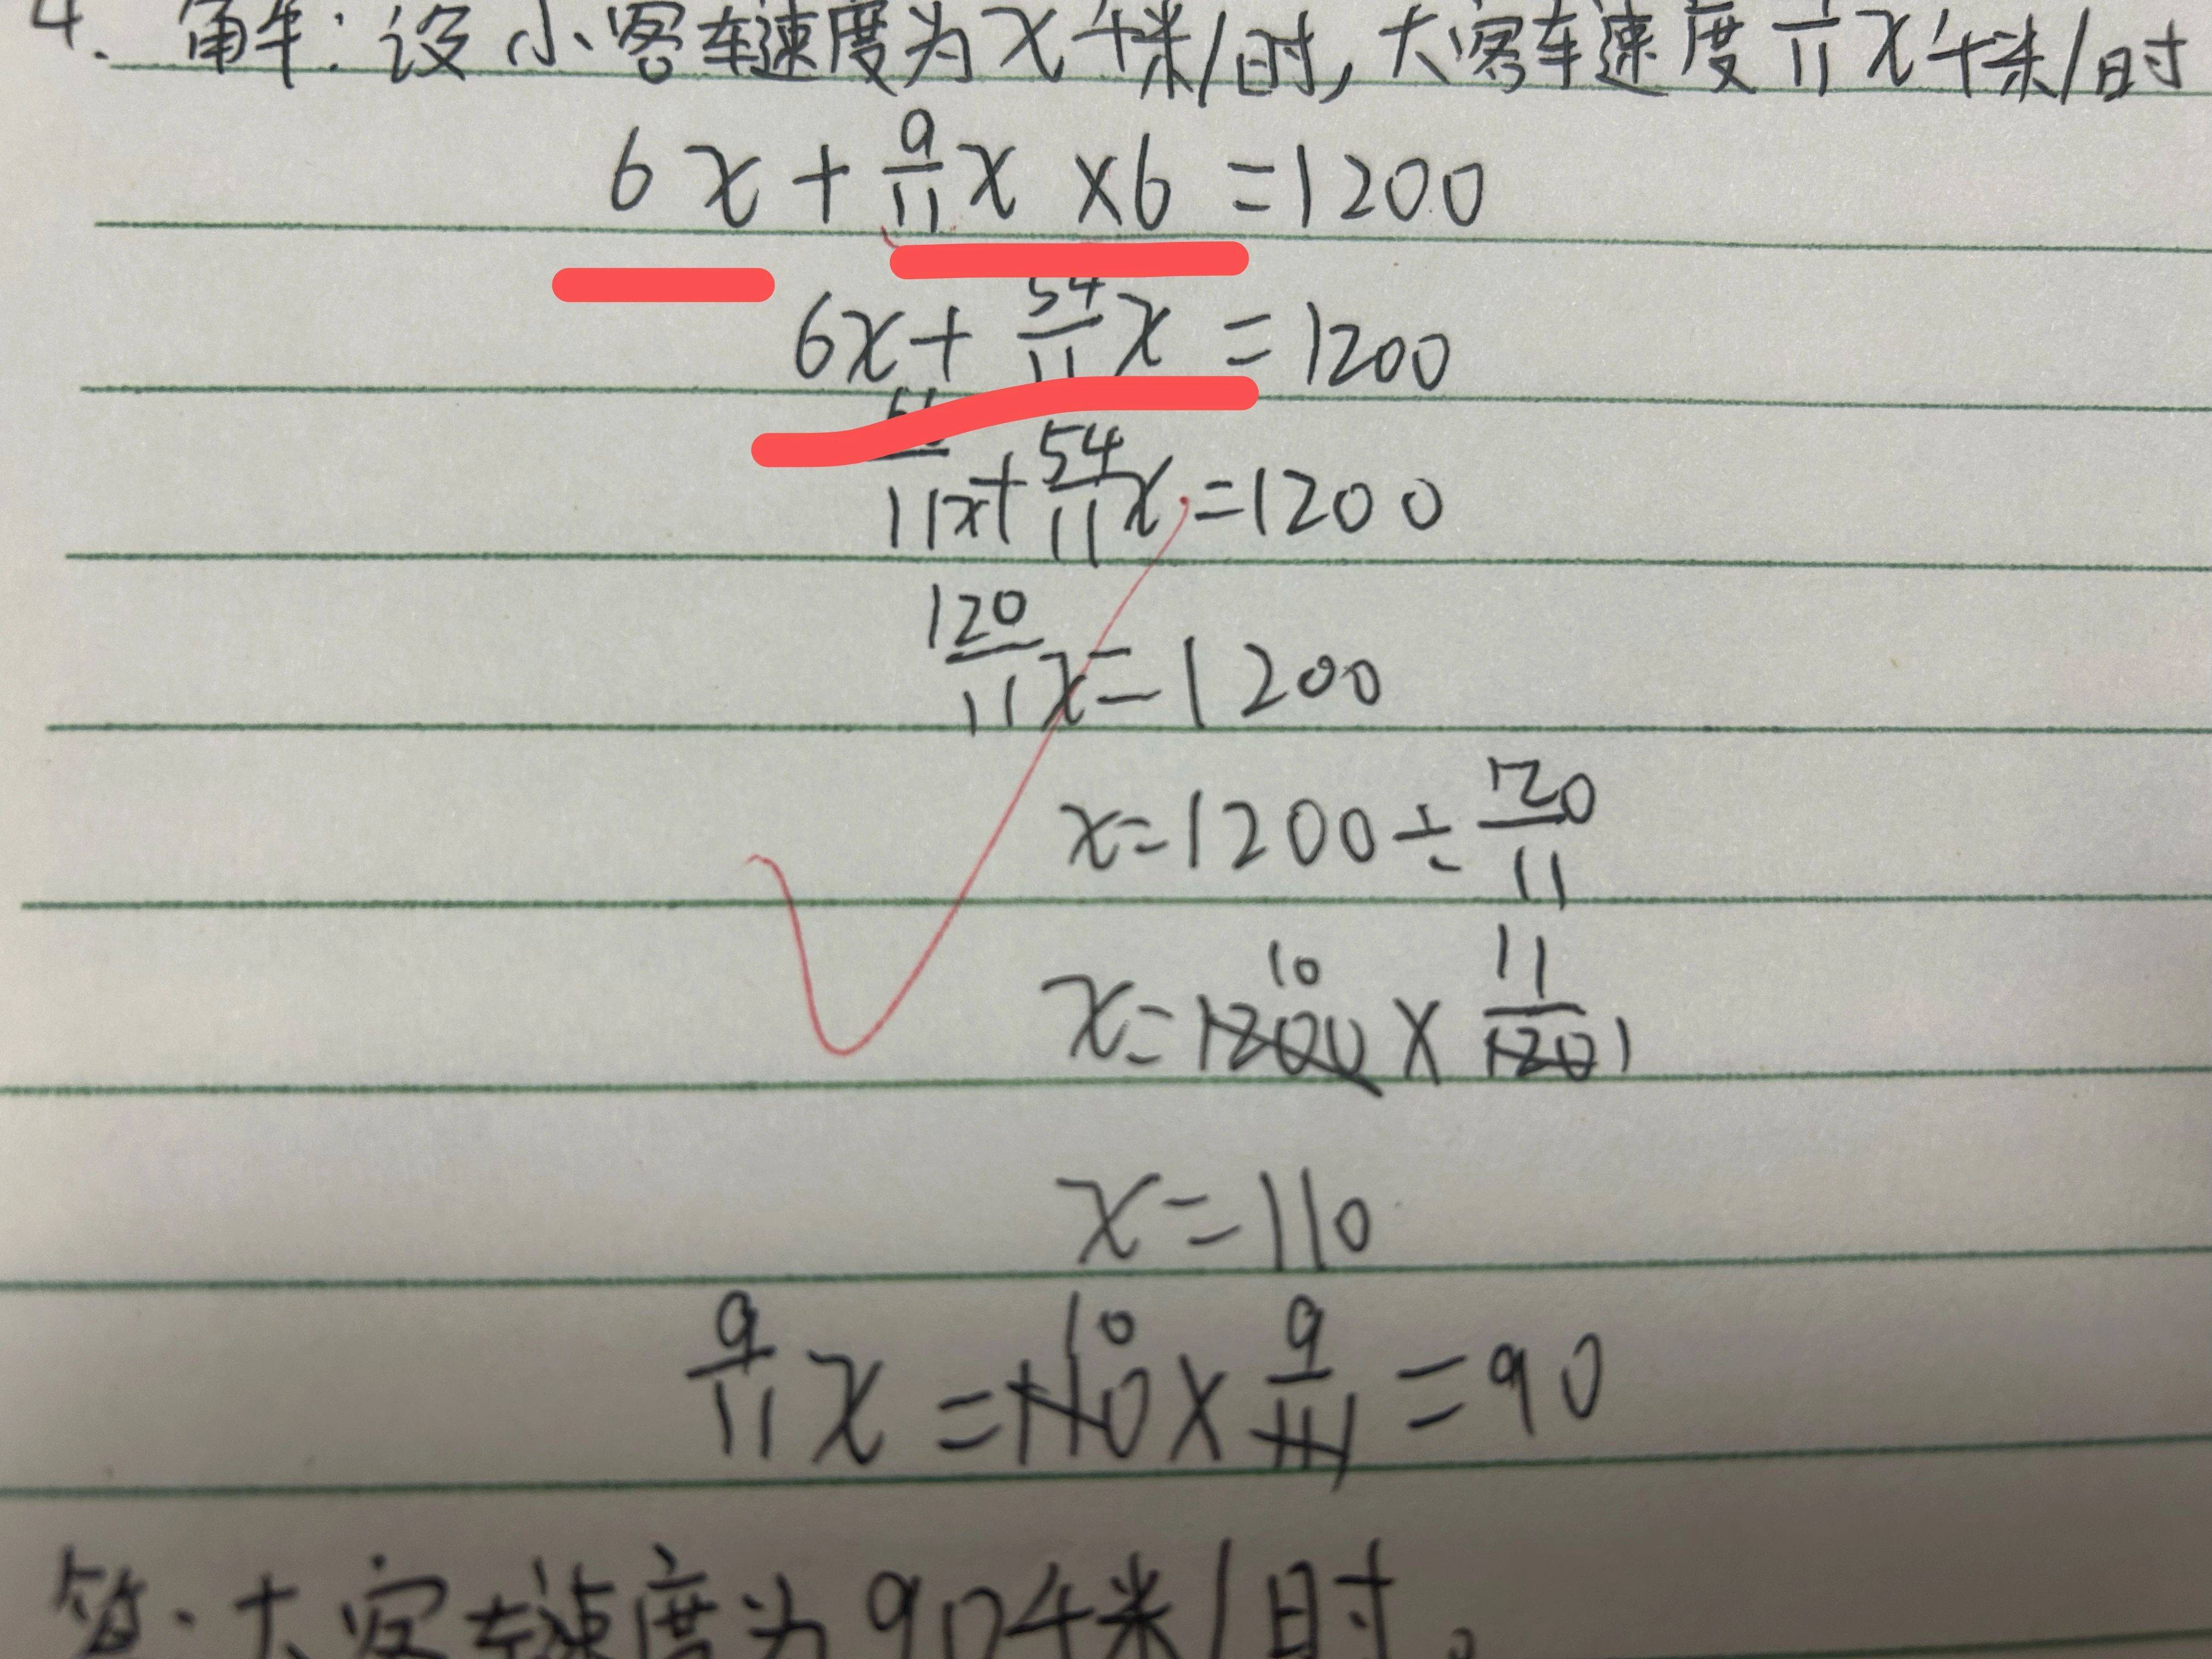 4. 解:设小客车速度为x千米/时,大客车速度 /11 x千米/时
6x+9/11x×6=1200
6x+54/11x=1200
66/11x+54/11x=1200
120/11x=1200
x=1200÷120/11
x=1200 10×11/120 1
x=110
9/11x=110 10×9/11 1=90
答.大客车速度为90千米/时。